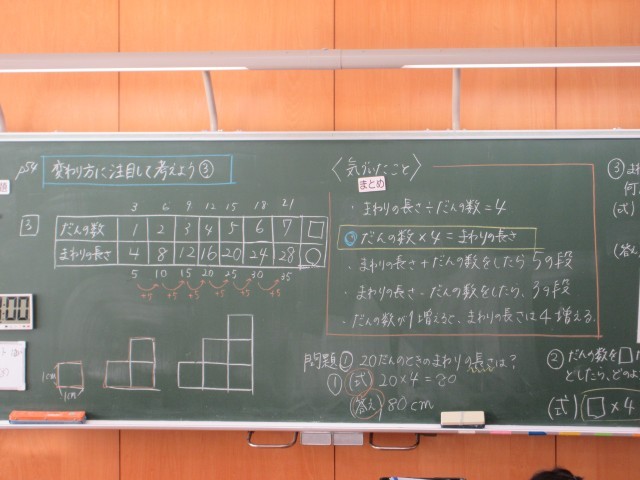 p54
変わり方に注目して考えよう③
3 6 9 12 15 18 21
3
だんの数 1 2 3 4 5 6 7 □
まわりの長さ 4 8 12 16 20 24 28 ○
5 10 15 20 25 30 35
+5 +5 +5 +5 +5 +5
1cm
1cm
〈気づいたこと〉
まとめ
・まわりの長さ÷だんの数=4
だんの数×4=まわりの長さ
・まわりの長さ+だんの数をしたら5の段
・まわりの長さ-だんの数をしたら、3の段
・だんの数が1増えると、まわりの長さは4増える。
問題① 20だんのときのまわりの長さは?
① (式) 20×4=80
(答え) 80cm
③
(式)
(答え)
② だんの数を□
としたら、
(式) □×4
:00
題